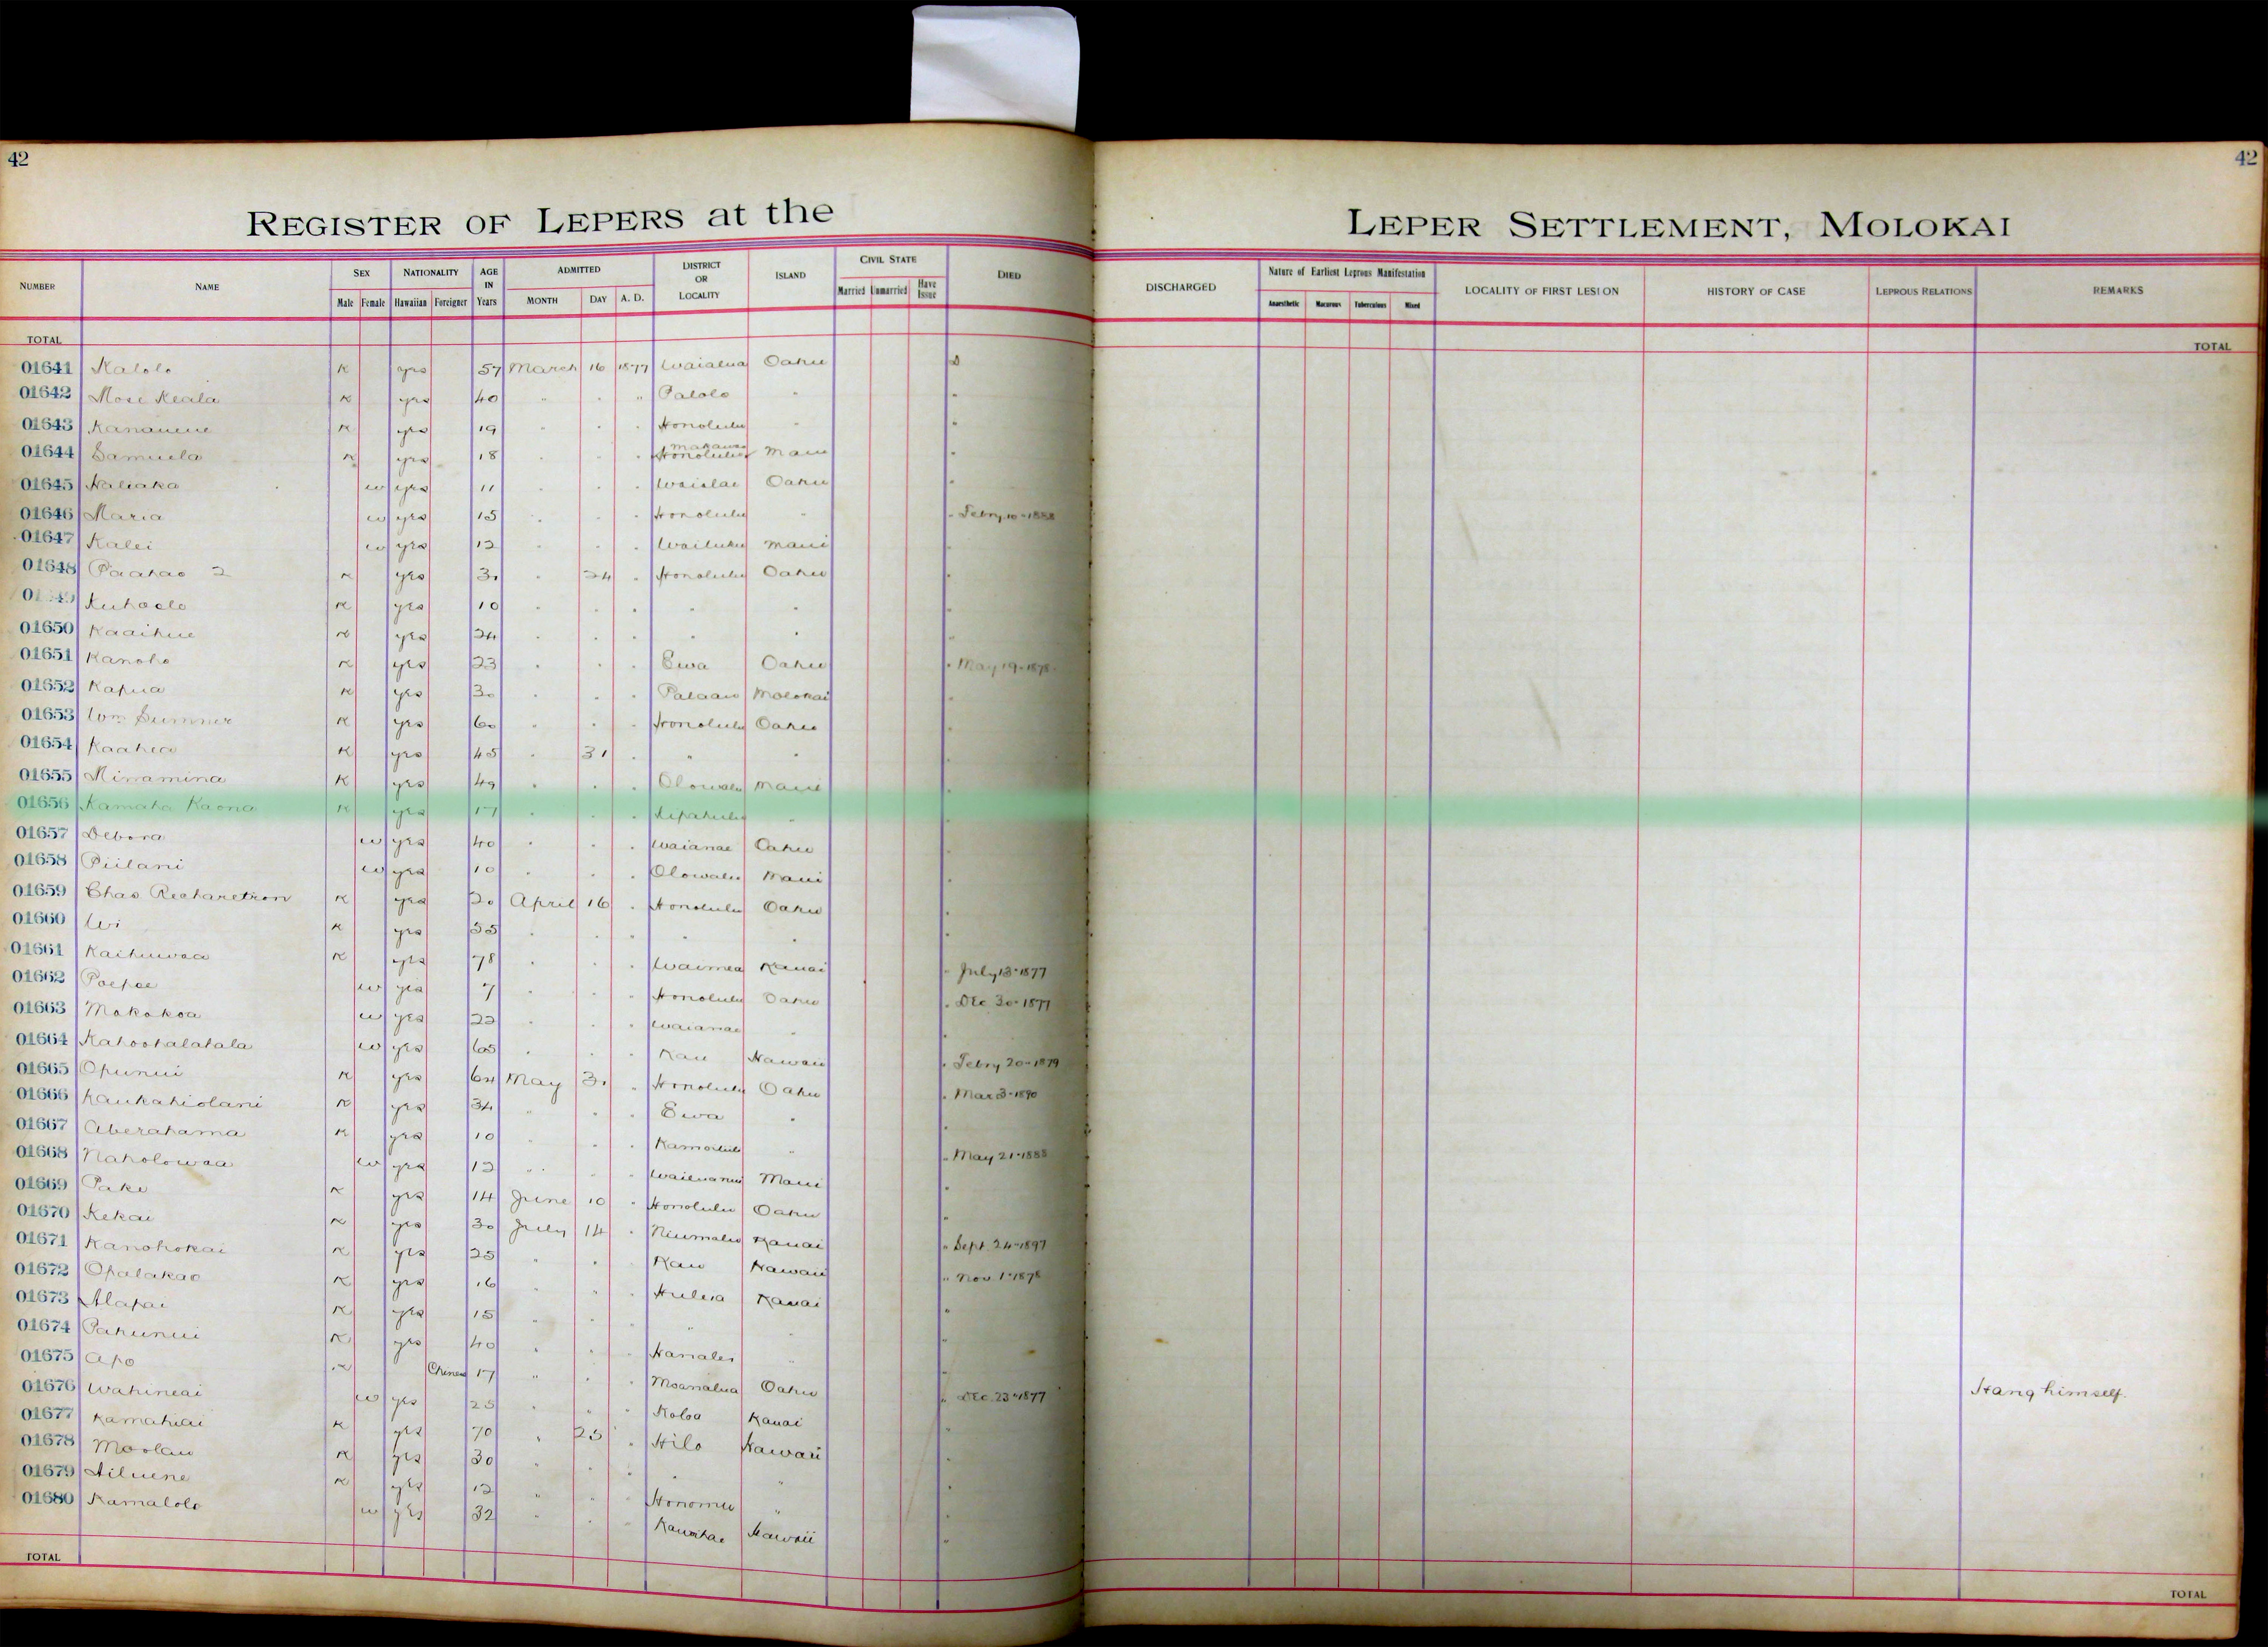 42
42
REGISTER OF LEPERS at the
LEPER SETTLEMENT, MOLOKAI
NUMBER NAME SEX Male Female NATIONALITY Hawaiian Foreigner AGE IN Years ADMITTED MONTH DAY A. D. DISTRICT OR LOCALITY ISLAND CIVIL STATE Married Unmarried Have Issue DIED DISCHARGED Nature of Earliest Leprous Manifestation Anaesthetic Mixed LOCALITY OF FIRST LESION HISTORY OF CASE LEPROUS RELATIONS REMARKS
TOTAL TOTAL
01641 Kalolo K yes 57 March 16 1877 Waialua Oahu
01642 Mose Keala K yes 40 " " " Palolo "
01643 K yes 19 " " " Honolulu "
01644 Samuela K yes 18 " " " Makawao Honolulu Maui
01645 w yes 11 " " " Waialae Oahu "
01646 Maria w yes 15 " " " Honolulu " " Febry 10-1888
01647 Kalei w yes 12 " " " Wailuku Maui "
01648 Paahao 2 K yes 30 " 24 " Honolulu Oahu "
Kuhaelo K yes 10 " " " " " "
01650 Kaaihue K yes 24 " " " " " "
01651 Kanoho K yes 23 " " " Ewa Oahu " May 19-1878
01652 Kapua K yes 30 " " " Palaau Molokai "
01653 Wm Sumner K yes 60 " " " Honolulu Oahu "
01654 Kaahea K yes 45 " 31 " " " "
01655 Minamina K yes 49 " " " Olowalu Maui "
01656 Kamaha Kaona K yes 17 " " " Kipahulu " "
01657 Debora w yes 40 " " " Waianae Oahu "
01658 Piilani w yes 10 " " " Olowalu Maui "
01659 Chas K yes 20 April 16 " Honolulu Oahu "
01660 Wi K yes 35 " " " " " "
01661 Kaihuwaa K yes 78 " " " Waimea Kauai " July 13-1877
01662 Poepoe w yes 7 " " " Honolulu Oahu " Dec 30-1877
01663 Makakoa w yes 22 " " " Waianae " "
01664 Kahoohalahala w yes 65 " " " Kau Hawaii " Febry 20-1879
01665 Opunui K yes 64 May 31 " Honolulu Oahu " Mar 3-1890
01666 Kaukahiolani K yes 34 " " " Ewa " "
01667 Aberahama K yes 10 " " " Kamoiliili " " May 21-1888
01668 Naholowaa w yes 12 " " " Wailuanui Maui "
01669 Pake K yes 14 June 10 " Honolulu Oahu "
01670 Kekai K yes 30 July 14 " Niumalu Kauai " Sept 24-1897
01671 Kanohokai K yes 25 " " " Kau Hawaii " Nov 1-1878
01672 Opalakao K yes 16 " " " Huleia Kauai "
01673 Alapai K yes 15 " " " " " "
01674 Pahunui K yes 40 " " " Hanalei " "
01675 Apo K Chinese 17 " " " Moanalua Oahu " Dec. 23-1877 Hang himself.
01676 Wahineai w yes 25 " " " Koloa Kauai "
01677 Kamahiai K yes 70 " 25 " Hilo Hawaii "
01678 Moolau K yes 30 " " " " " "
01679 K yes 12 " " " Honomu " "
01680 Kamalolo w yes 32 " " " Kawaihae Hawaii "
TOTAL TOTAL